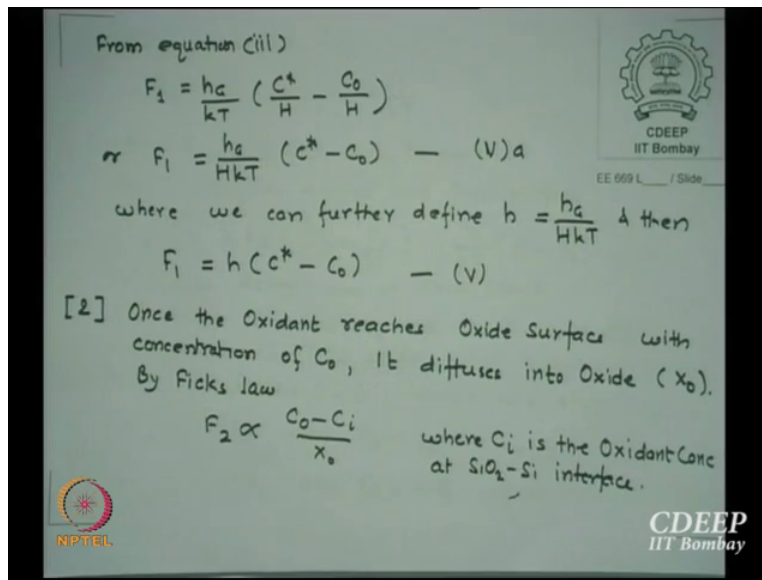 From equation (iii)
F₁ = h_G/kT (C*/H - C₀/H)
or F₁ = h_G/HkT (C* - C₀) — (V)a
where we can further define h = h_G/HkT & then
F₁ = h (C* - C₀) — (V)
[2] Once the Oxidant reaches Oxide Surface with
concentration of C₀, It diffuses into Oxide (X₀).
By Ficks law
F₂ ∝ C₀-Cᵢ/X₀ where Cᵢ is the Oxidant Conc
at SiO₂-Si interface.
CDEEP
IIT Bombay
EE 669 L___ / Slide___
NPTEL
CDEEP
IIT Bombay